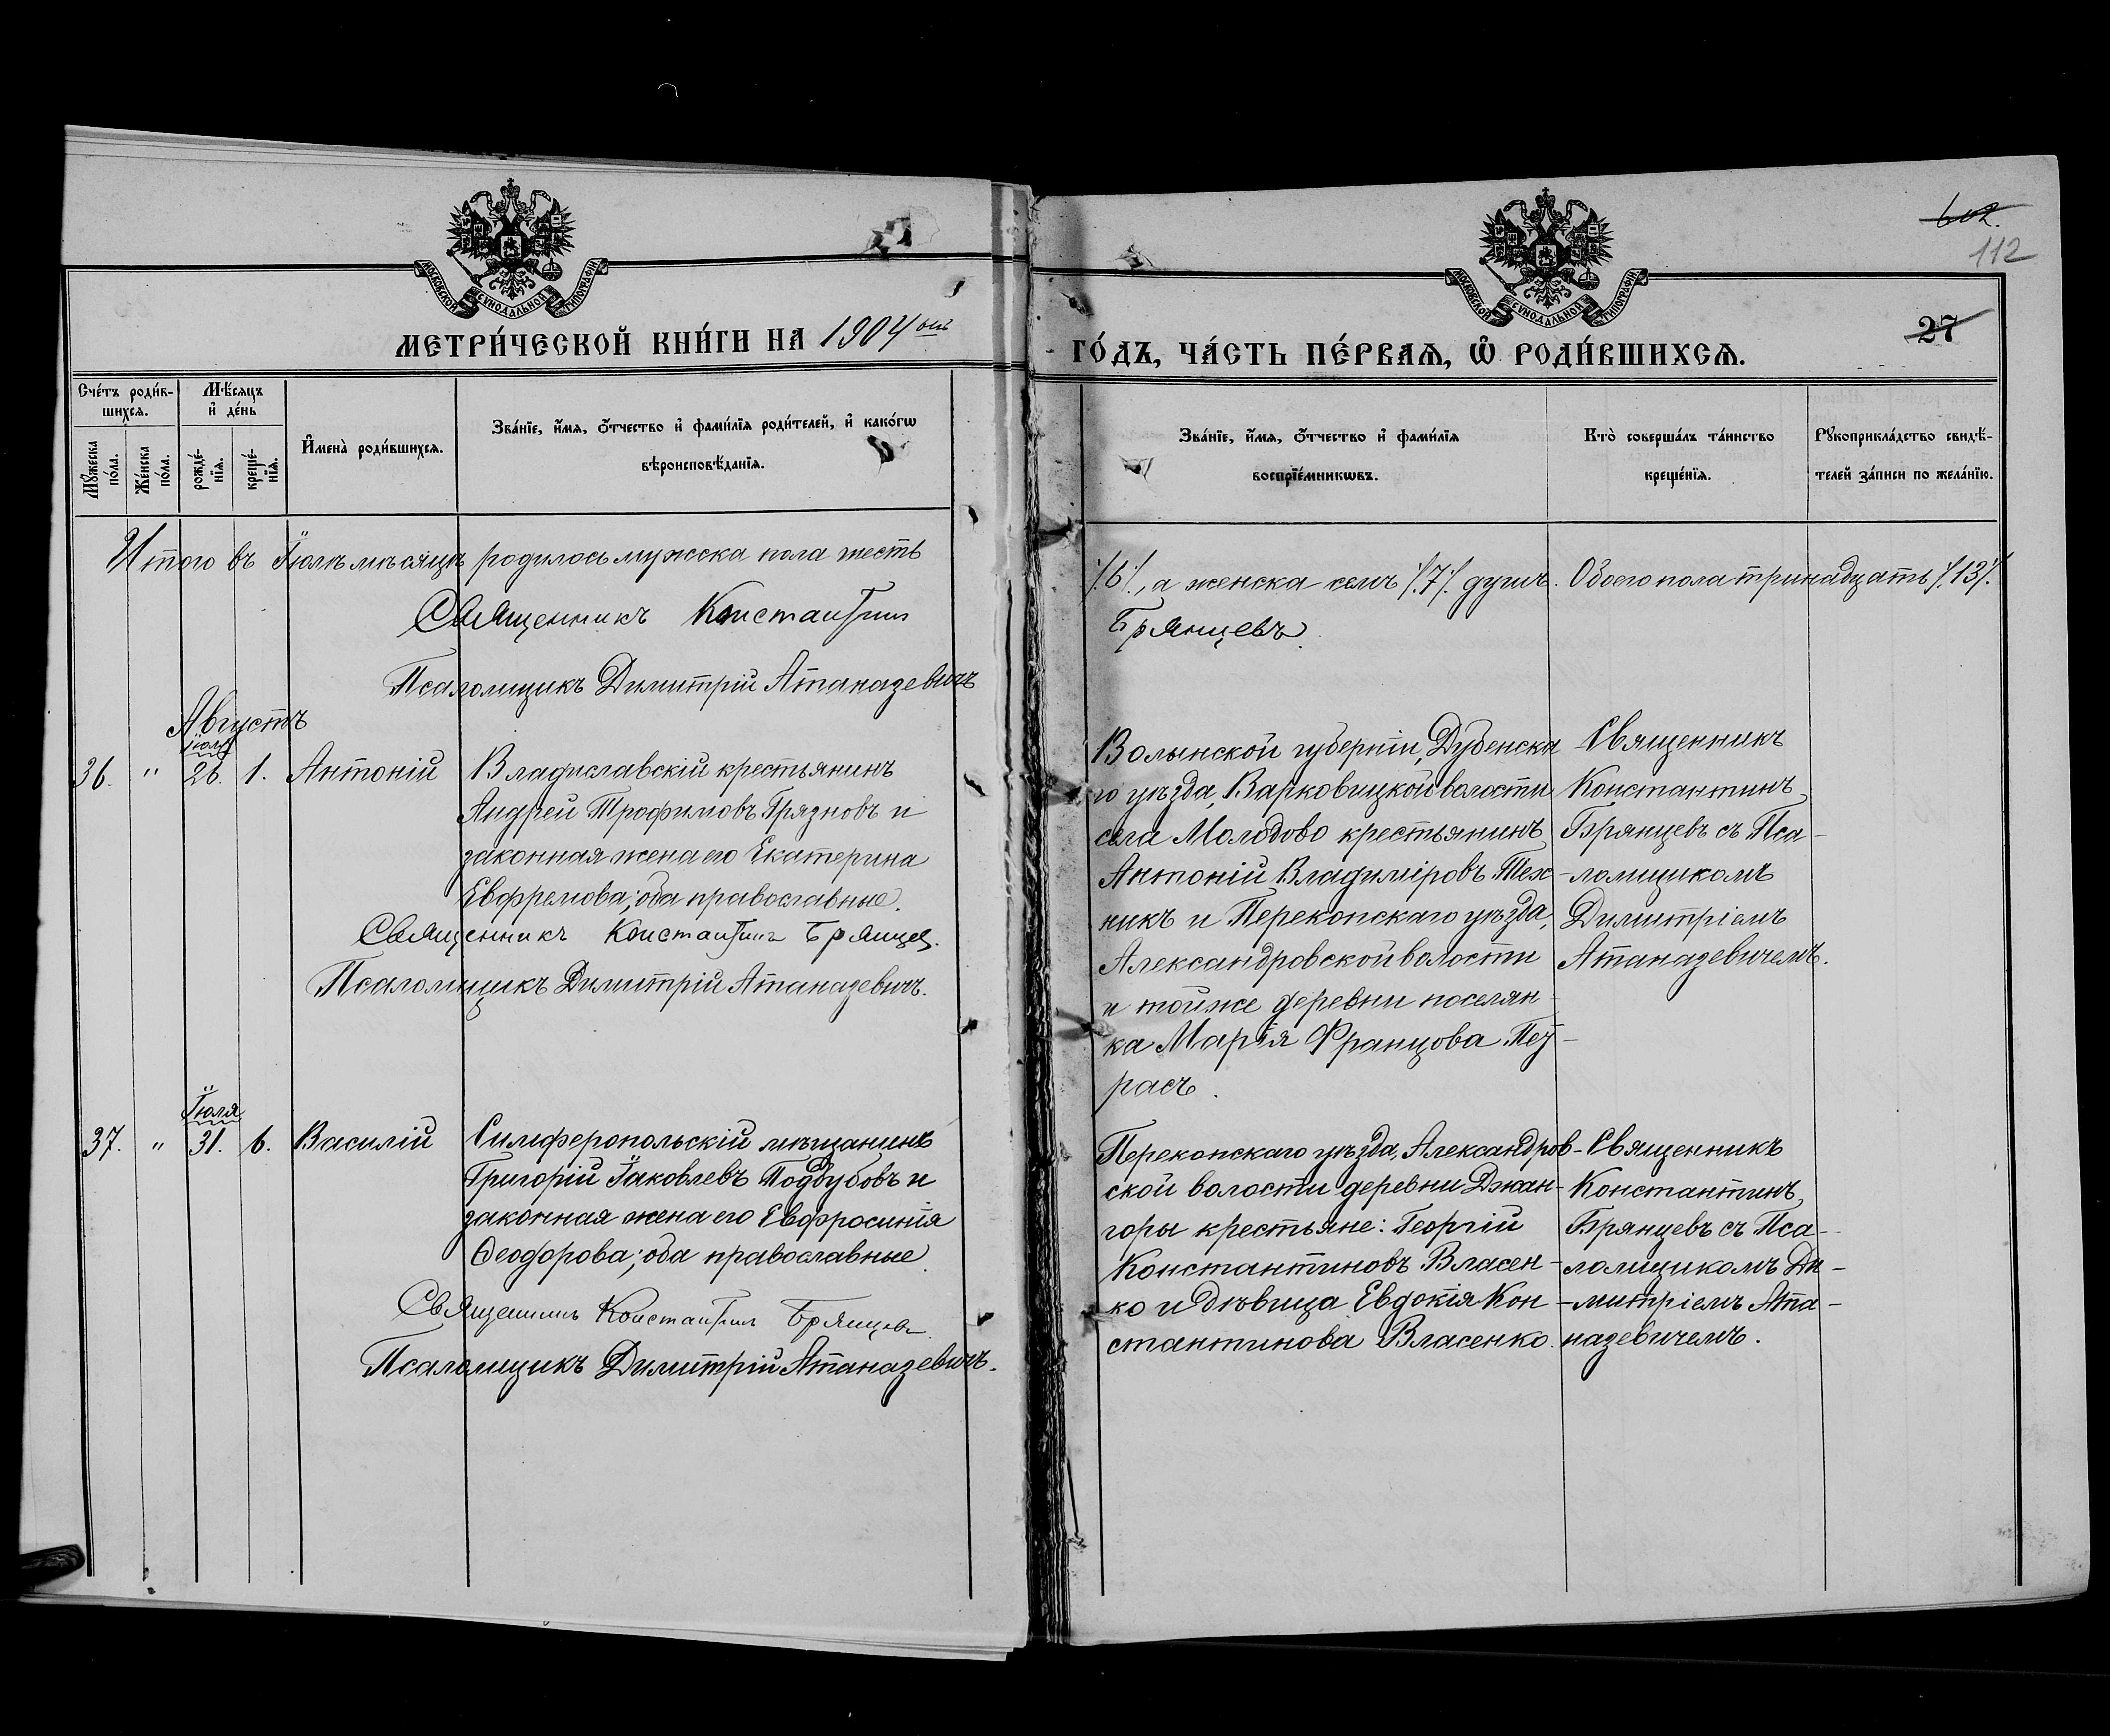 602.
112
МОСКОВСКОЙ СѴНОДАЛЬНОЙ ТИПОГРАФІИ
МОСКОВСКОЙ СѴНОДАЛЬНОЙ ТИПОГРАФІИ
27
МЕТРИ́ЧЕСКОЙ КНИ́ГИ НА 1904ый
ГО́ДЪ, ЧА́СТЬ ПЕ́РВАѦ, Ѡ҆ РОДИ́ВШИХСѦ.
Счетъ роди́в-
шихсѧ.
Мѣ́сѧцъ
и҆ де́нь
Мꙋ́жеска
по́ла.
Же́нска
по́ла.
рожде́-
нїѧ.
креще́-
нїѧ.
И҆мена̀ роди́вшихсѧ.
Зва́нїе, и҆́мѧ, ѻ҆́тчество и҆ фами́лїѧ роди́телей, и҆ како́гѡ
вѣроисповѣ́данїѧ.
Зва́нїе, и҆́мѧ, ѻ҆́тчество и҆ фами́лїѧ
воспрїе́мникѡвъ.
Кто̀ соверша́лъ та́инство
креще́нїѧ.
Рꙋкоприкла́дство свидѣ́-
телей за́писи по жела́нїю.
Итого въ Іюлѣ мѣсяцѣ родилось мужска пола шесть
/.6/., а женска семь /.7/. душъ. Обоего пола тринадцать /.13/.
Священникъ Константинъ
Брянцевъ.
Псаломщикъ Димитрій Атаназевичъ
Августъ
Іюля
36. " 26. 1. Антоній
Владиславскій крестьянинъ
Андрей Трофимовъ Грязновъ и
законная жена его Екатерина
Евфремова; оба православные.
Священникъ Константинъ Брянцев.
Псаломщикъ Димитрій Атаназевичъ.
Волынской губерніи, Дубенска
го уѣзда, Варковицкой волости
села Молодово крестьянинъ
Антоній Владиміровъ Тех-
никъ и Перекопскаго уѣзда,
Александровской волости
и той же деревни поселян-
ка Марія Францова Пей-
расъ.
Священникъ
Константинъ
Брянцевъ съ Пса-
ломщикомъ
Димитріемъ
Атаназевичемъ.
Іюля
37. " 31. 6. Василій
Симферопольскій мѣщанинъ
Григорій Іаковлевъ Поддубовъ и
законная жена его Евфросинія
Ѳеодорова; оба православные.
Священникъ Константинъ Брянцевъ.
Псаломщикъ Димитрій Атаназевичъ.
Перекопскаго уѣзда, Александров-
ской волости деревни Джан-
горы крестьяне: Георгій
Константиновъ Власен-
ко и дѣвица Евдокія Кон-
стантинова Власенко.
Священникъ
Константинъ
Брянцевъ съ Пса-
ломщикомъ Ди-
митріемъ Ата-
назевичемъ.